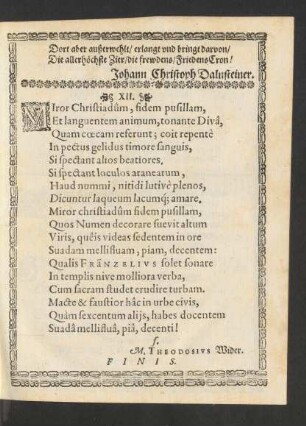 Dort aber außerwehlt/ erlangt vnd bringt darvon/
Die allerhöchste Zier/ die frewdens/ Friedens Cron!
Johann Christoph Dalnsteiner.
XII.
MIror Christiadûm, fidem pusillam,
Et languentem animum, tonante Divâ,
Quam cœcam referunt; coit repentè
In pectus gelidus timore sanguis,
Si spectant alios beatiores.
Si spectant loculos aranearum,
Haud nummi, nitidi lutivè plenos,
Dicuntur laqueum lacumq; amare.
Miror christiadûm fidem pusillam,
Quos Numen decorare suevit altum
Viris, quêis videas sedentem in ore
Suadam mellifluam, piam, decentem:
Qualis FRÄNZELIVS solet sonare
In templis nive molliora verba,
Cum sacram studet erudire turbam.
Macte & faustior hâc in urbe civis,
Quàm sexcentum alijs, habes docentem
Suadâ mellifluâ, piâ, decenti!
f.
M. THEODOSIVS Wider.
FINIS.